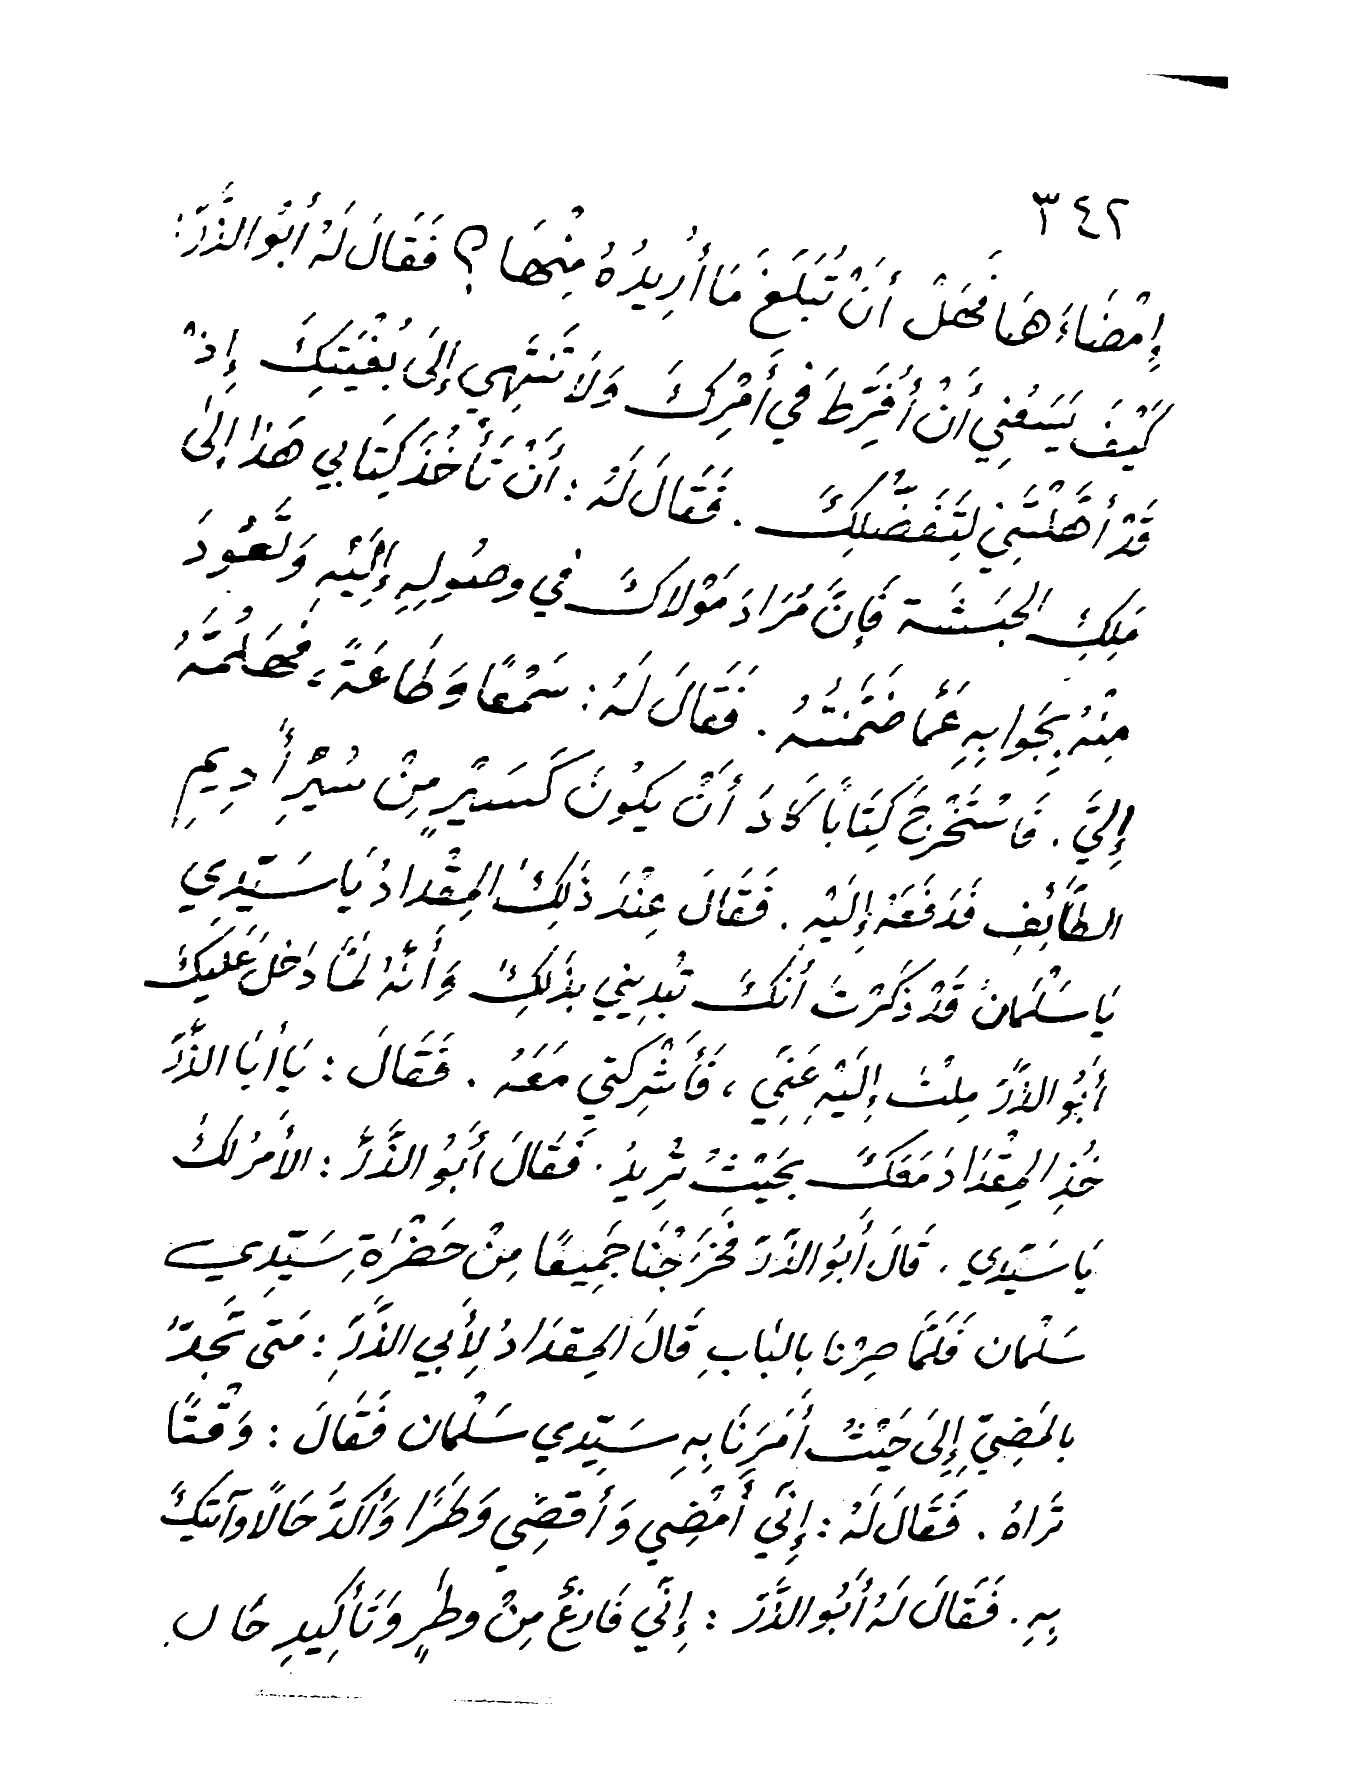 ٣٤٢
إِمْضَاءَهَا فَهَلْ أَنْ تُبَلِّغَ مَا أُرِيدُهُ مِنْهَا ؟ فَقَالَ لَهُ أَبُو الذَّرّ :
كَيْفَ يَسَعُنِي أَنْ أُفَرِّطَ فِي أَمْرِكَ وَلاَ تَنْتَهِي إِلَى بُغْيَتِكَ إِذْ
قَدْ أَهَّلْتَنِي لِتَفَضُّلِكَ . فَقَالَ لَهُ : أَنْ تَأْخُذَ كِتَابِي هَذَا إِلَى
مَلِكِ الحَبَشَة فَإِنَّ مُرَادَ مَوْلاَكَ فِي وصُولِهِ إِلَيْهِ وَتَعُودَ
مِنْهُ بِجَوابِهِ عَمَّا ضَمَّنْتُهُ . فَقَالَ لَهُ : سَمْعًا وَطَاعَةً ، فَهَلُمَّهُ
إِلَيَّ . فَاسْتَخْرَجَ كِتَابًا كَادَ أَنْ يَكُونَ كَسَيْرٍ مِنْ سُيْرِ أَدِيمِ
الطَّائِفِ فَدَفَعَهُ إِلَيْهِ . فَقَالَ عِنْدَ ذَلِكَ المِقْدادُ يَا سَيِّدِي
يَا سَلْمَانُ قَدْ ذَكَرْتَ أَنَّكَ تَبْدِينِي بِذَلِكَ وَأَنَّهُ لَمَّا دَخَلَ عَلَيْكَ
أَبُو الذَّرّ مِلْتَ إِلَيْهِ عَنِّي ، فَأَشْرِكْنِي مَعَهُ . فَقَالَ : يَا أَبَا الذَّرّ
خُذِ المِقْدَادَ مَعَكَ بِحَيْثُ تُرِيدُ . فَقَالَ أَبُو الذَّرّ : الأَمْرُ لَكَ
يَا سَيِّدِي . قَالَ أَبُو الذَّرّ فَخَرَجْنَا جَمِيعًا مِنْ حَضْرَةِ سَيِّدِي
سَلْمان فَلَمَّا صِرْنا بالبَابِ قَالَ المِقدَادُ لِأَبي الذَّرِّ : مَتَى تَجِدّ
بالمَضِيِّ إِلَى حَيْثُ أَمَرَنَا بِهِ سَيِّدِي سَلْمان فَقَالَ : وَقْتًا
تَراهُ . فَقَالَ لَهُ : إِنِّي أَمْضِي وَأَقضِي وَطَرًا وَأُكَدّ حَالًا وآتيكَ
بِهِ . فَقَالَ لَهُ أَبُو الذَّرّ : إِنِّي فَارِغٌ مِنْ وطَرٍ وَتَأكِيدِ حَال